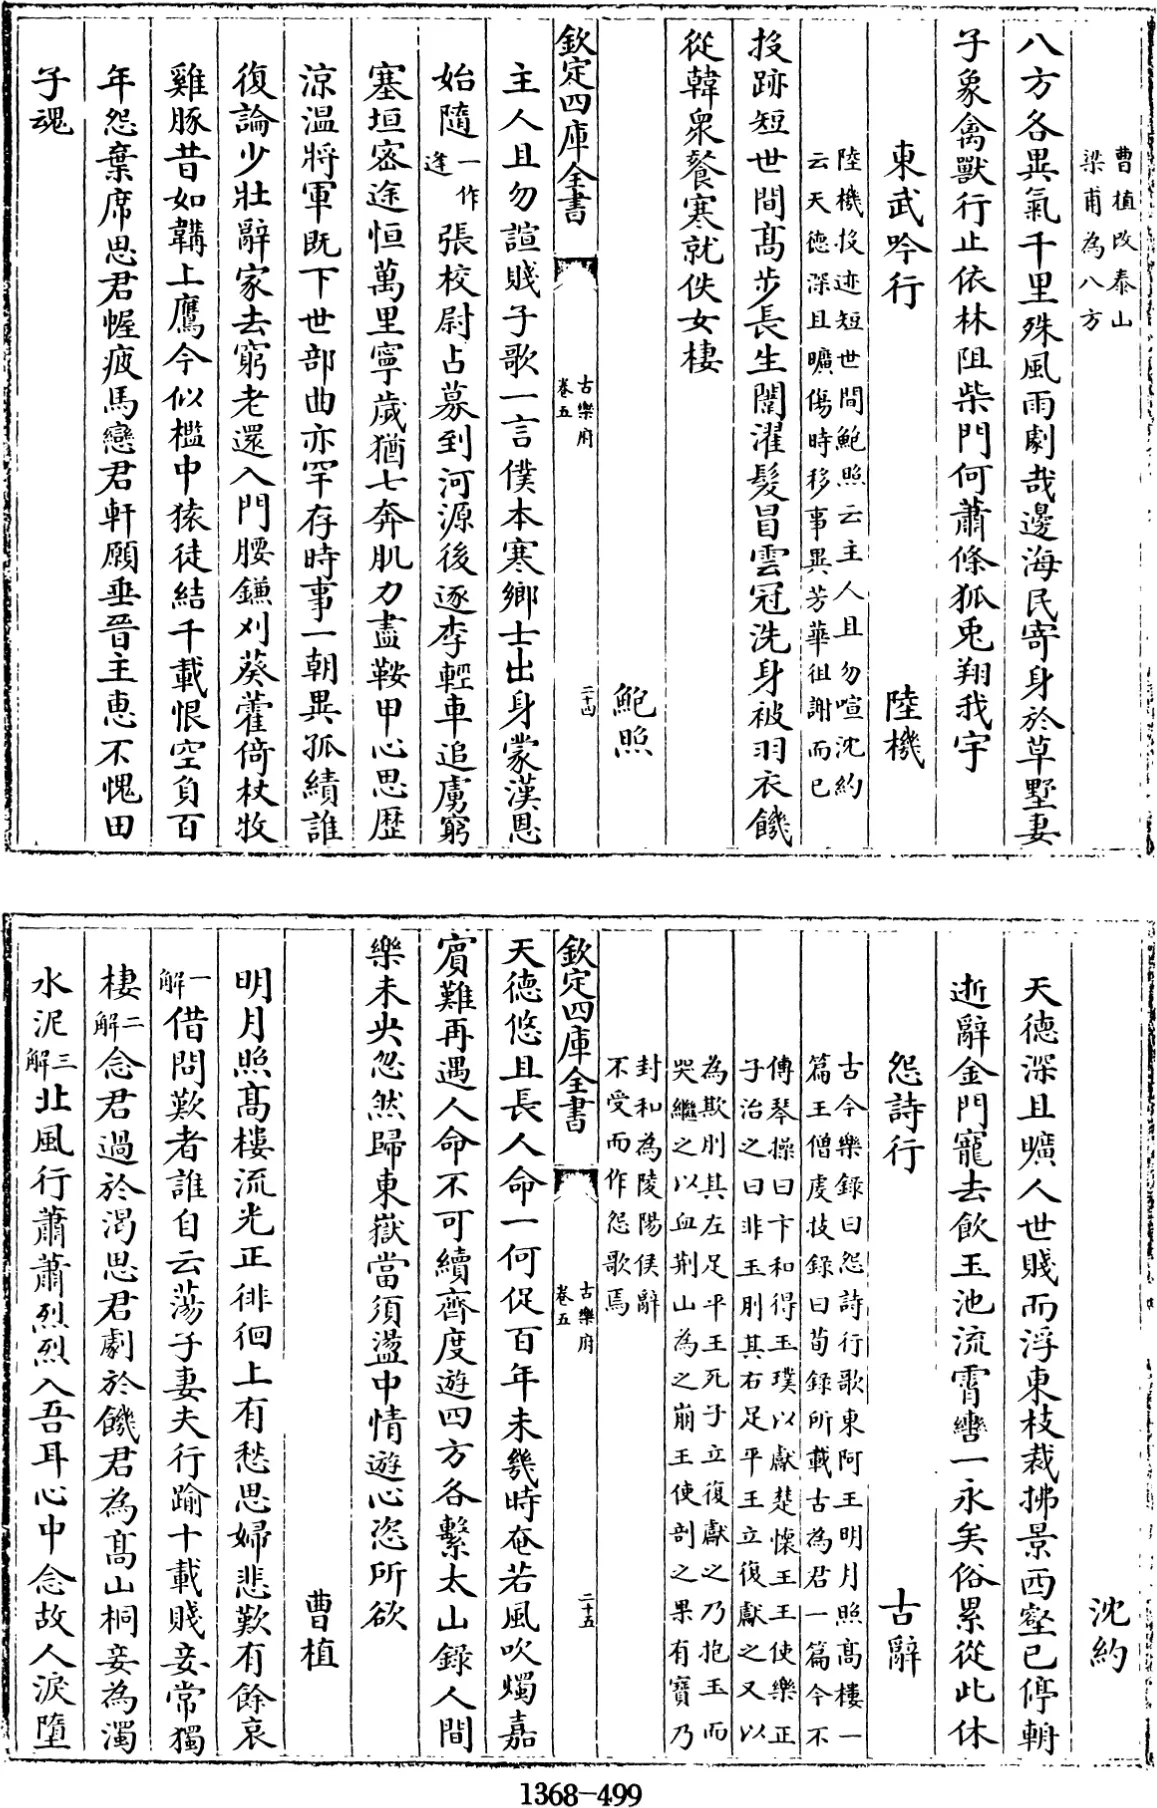 曹植改泰山
梁甫為八方
八方各異氣千里殊風雨劇哉邊海民寄身於草墅妻
子象禽獸行止依林阻柴門何蕭條狐兎翔我宇
東武吟行 陸機
陸機投迹短世間鮑照云主人且勿喧沈約
云天德深且曠傷時移事異芳華徂謝而已
投跡短世間髙步長生闈濯髮冒雲冠洗身被羽衣饑
從韓衆餐寒就佚女棲
鮑照
欽定四庫全書
古樂府
卷五
二十四
主人且勿諠賤子歌一言僕本寒鄉士出身蒙漢恩
始隨一作逢張校尉占募到河源後逐李輕車追虜窮
塞垣宻途恒萬里寧歲猶七奔肌力盡鞍甲心思歴
涼温將軍既下世部曲亦罕存時事一朝異孤績誰
復論少壯辭家去窮老還入門腰鎌刈葵藿倚杖牧
雞豚昔如韝上鷹今似檻中猿徒結千載恨空負百
年怨棄席思君幄疲馬戀君軒願垂晉主惠不愧田
子魂
沈約
天德深且曠人世賤而浮東枝裁拂景西壑已停輈
逝辭金門寵去飲玉池流霄轡一永矣俗累從此休
怨詩行 古辭
古今樂録曰怨詩行歌東阿王明月照髙樓一
篇王僧虔技録曰荀録所載古為君一篇今不
傳琴操曰卞和得玉璞以獻楚懷王王使樂正
子治之曰非玉刖其右足平王立復獻之又以
為欺刖其左足平王死子立復獻之乃抱玉而
哭繼之以血荆山為之崩王使剖之果有寳乃
封和為陵陽侯辭
不受而作怨歌焉
欽定四庫全書
古樂府
卷五
二十五
天德悠且長人命一何促百年未幾時奄若風吹燭嘉
賓難再遇人命不可續齊度遊四方各繫太山録人間
樂未央忽然歸東嶽當須盪中情遊心恣所欲
曹植
明月照髙樓流光正徘徊上有愁思婦悲歎有餘哀
一解借問歎者誰自云蕩子妻夫行踰十載賤妾常獨
棲二解念君過於渇思君劇於饑君為髙山桐妾為濁
水泥三解北風行蕭蕭烈烈入吾耳心中念故人淚墮
1368-499